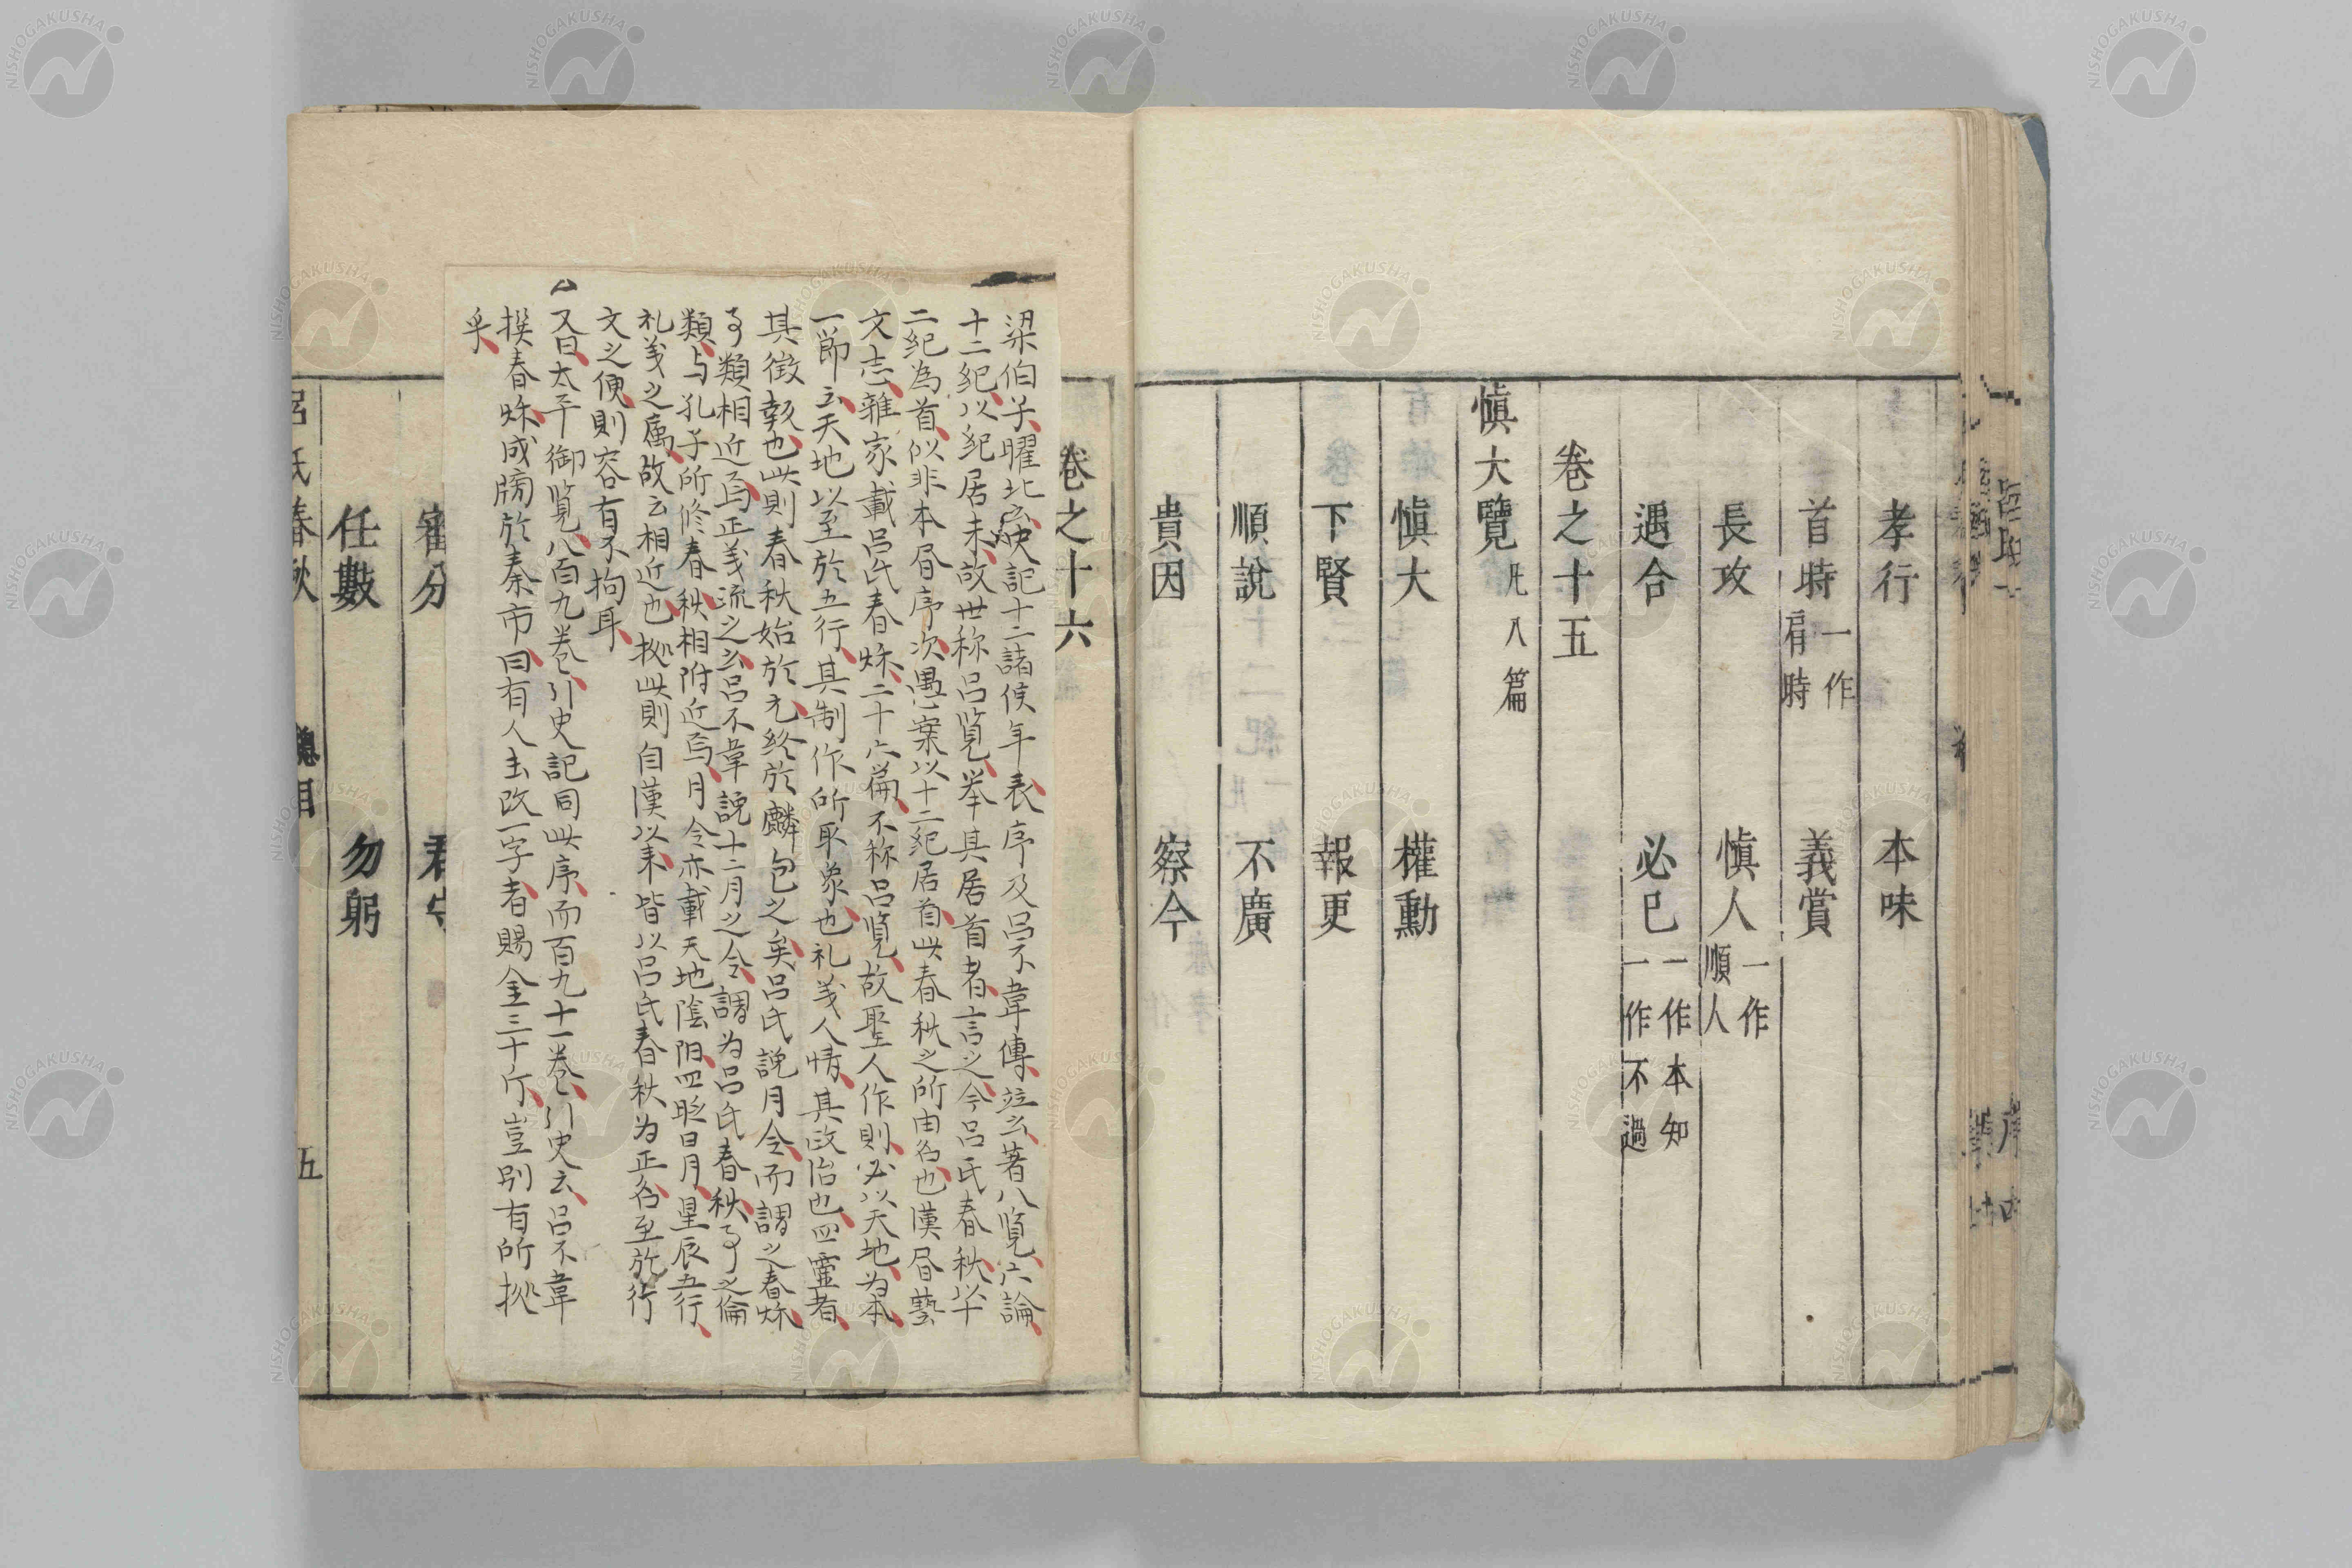 孝行 本味
首時 一作肩時 義賞
長攻 慎人 一作順人
遇合 必己 一作本知 一作不過
卷之十五
慎大覽 凡八篇
慎大 權勳
下賢 報更
順說 不廣
貴因 察今
卷之十六
梁伯子曜北云史記十二諸侯年表序及呂不韋傳竝云著八覧六論
十二紀以紀居末故世称呂覧举其居首者言之今呂氏春秋以十
二紀為首似非本眉序次愚案以十二紀居首此春秋之所由名也漢眉藝
文志雜家載呂氏春秌二十六篇不称呂覧故聖人作則必以天地為本
一節云天地以至於五行其制作所取象也礼義人情其政治也四靈者
其徵報也此則春秋始於元終於麟包之矣呂氏說月令而謂之春秌
事類相近焉正義流之云呂不韋說十二月之令謂為呂氏春秋事之倫
類与孔子所修春秋相附近焉月令亦載天地陰阳四时日月星辰五行
礼義之属故云相近也拠此則自漢以来皆以呂氏春秋为正名至於行
文之便則容有不拘耳
又曰太平御覧八百九卷引史記同此序而百九十一卷引史云呂不韋
撰春秌成牓於秦市曰有人去改一字者賜金三十斤豈別有所拠
乎
審分 君守
任數 勿躬
呂氏春秋 總目 五
NISHOGAKUSHA